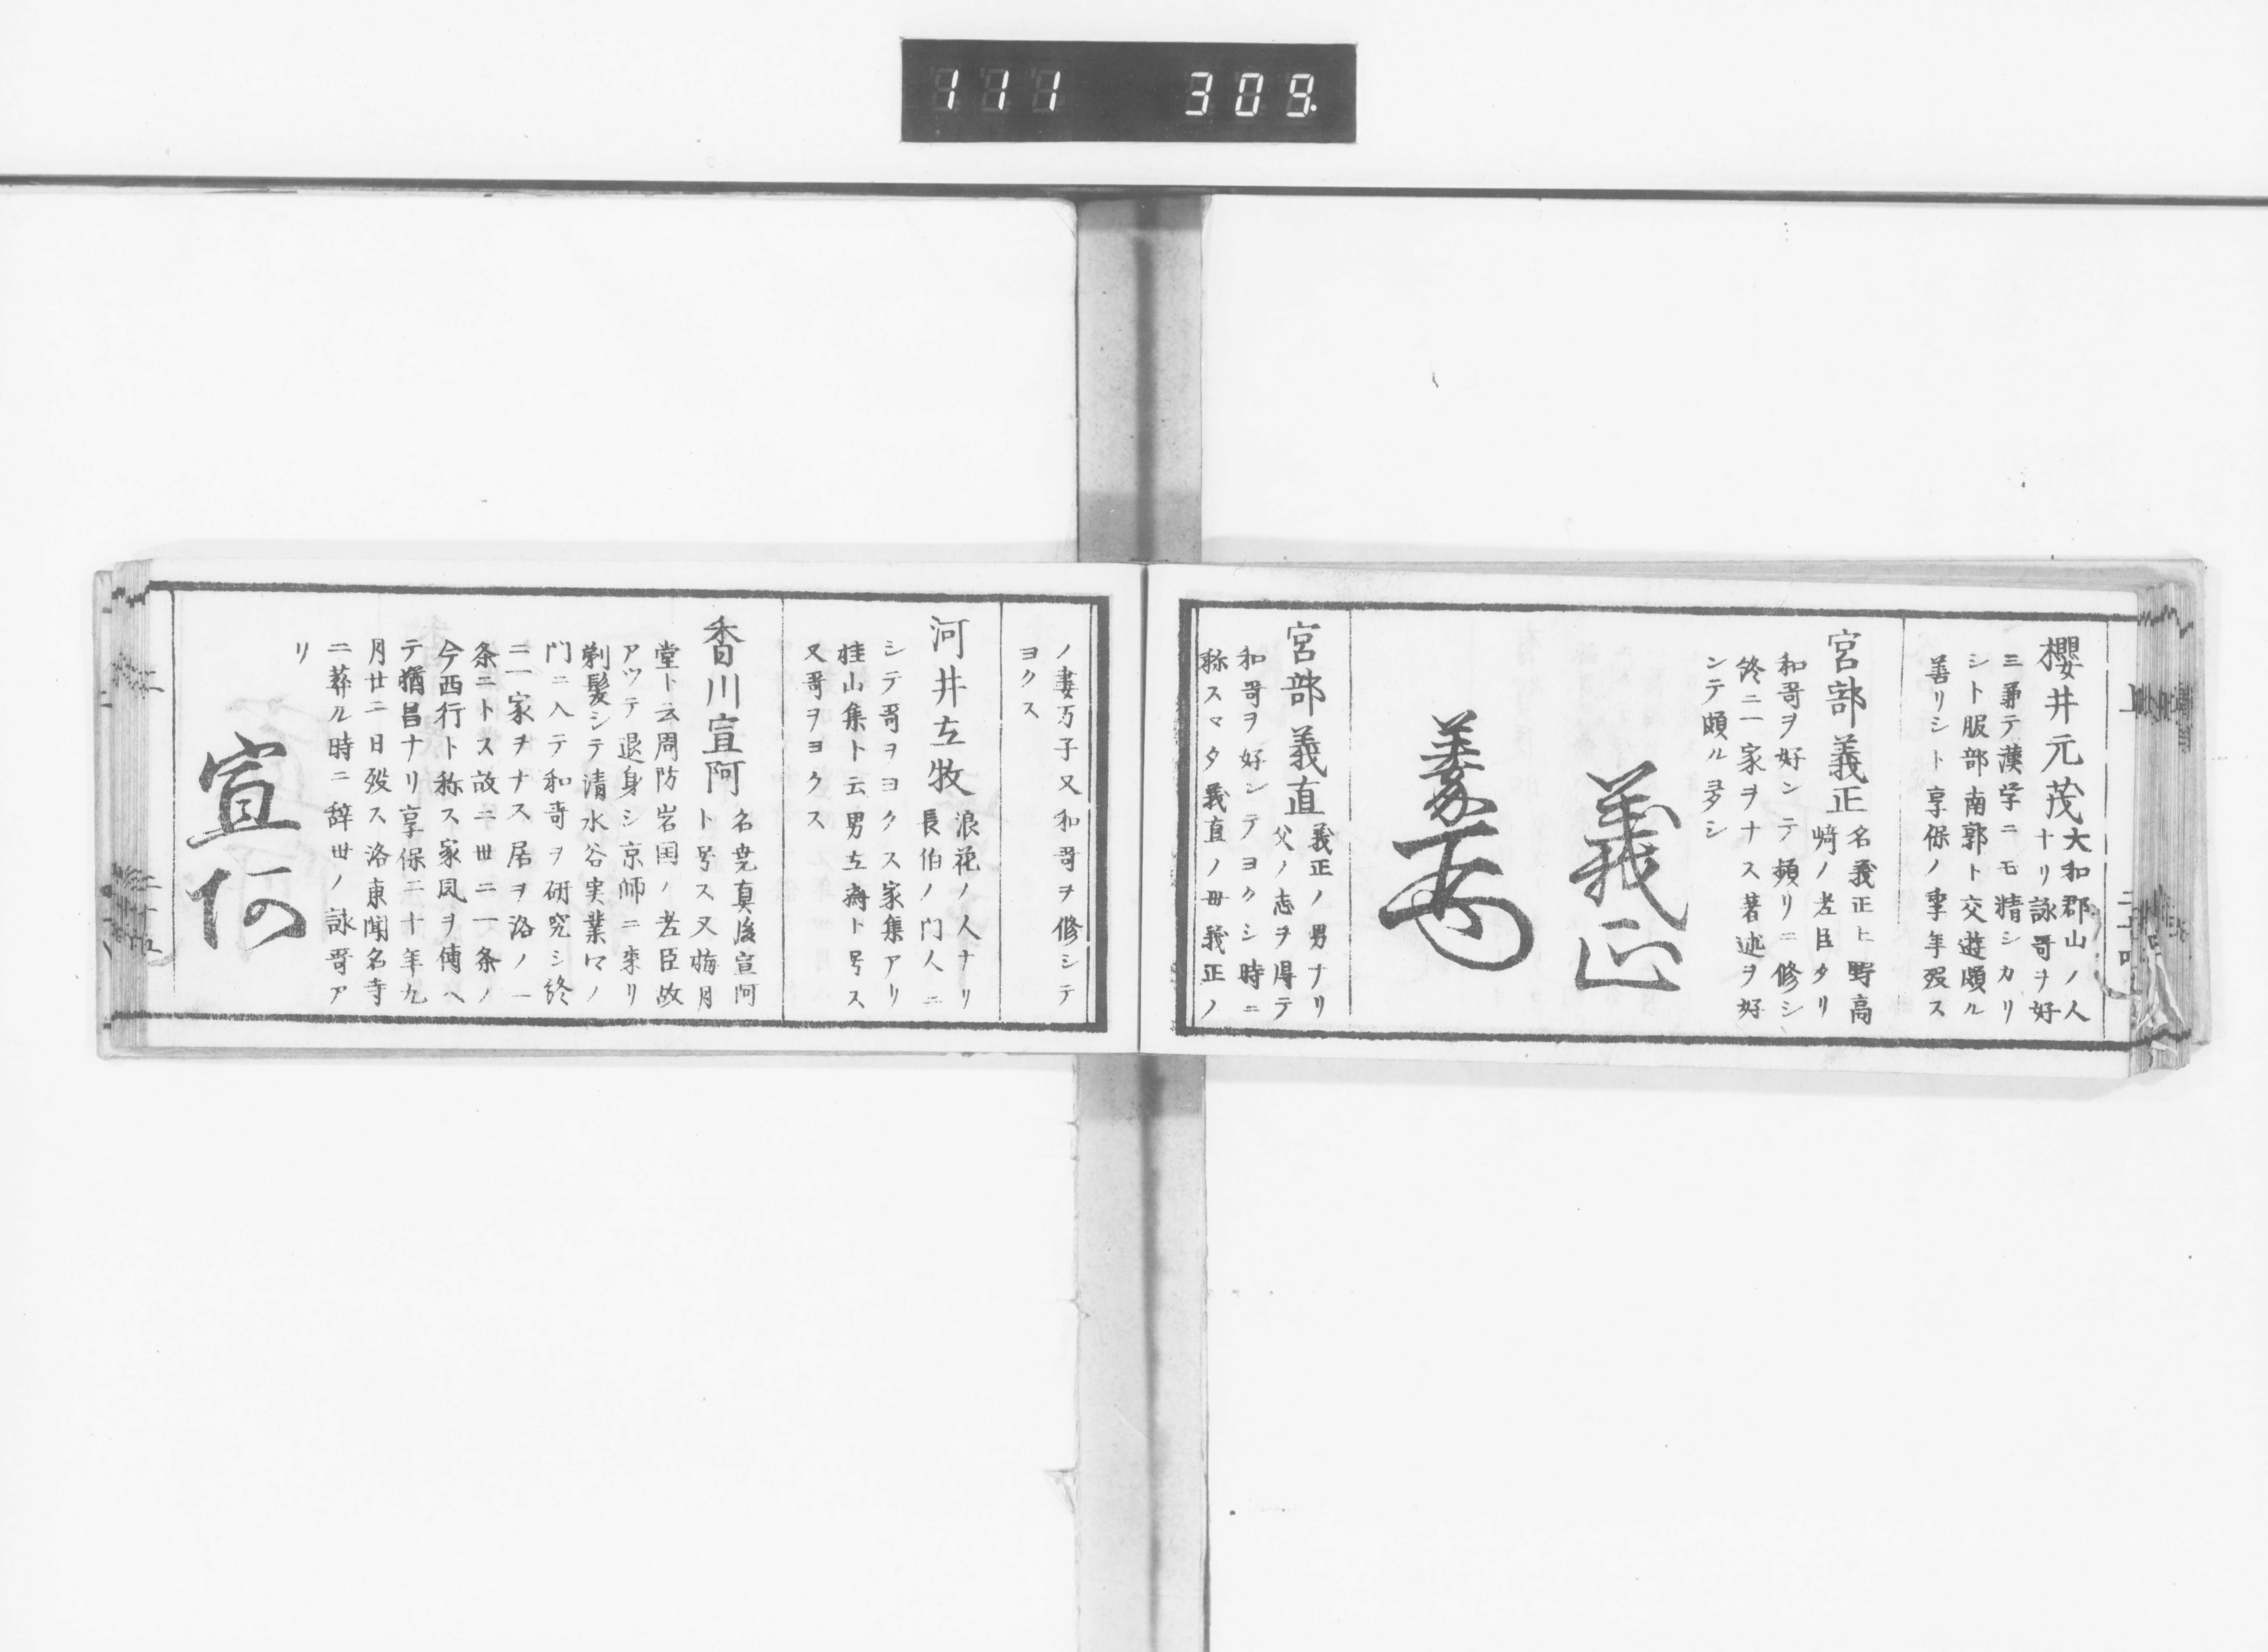 111 309.
櫻井元茂
大和郡山ノ人
ナリ詠哥ヲ好
三兼テ漢学ニモ精シカリ
シト服部南郭ト交遊頗ル
善リシト享保ノ季年歿ス
宮部義正
名義正上野高
﨑ノ老臣タリ
和哥ヲ好ンテ頻リニ修シ
終ニ一家ヲナス著述ヲ好
ンテ頗ル多シ
義正
義
宮部義直
義正ノ男ナリ
父ノ志ヲ得テ
和哥ヲ好ンテヨクシ時ニ
称スマタ義直ノ母義正ノ
ノ妻万子又和哥ヲ修シテ
ヨクス
河井立牧
浪花ノ人ナリ
長伯ノ門人ニ
シテ哥ヲヨクス家集アリ
桂山集ト云男立齋ト号ス
又哥ヲヨクス
香川宣阿
名尭真後宣阿
ト号ス又梅月
堂ト云周防岩国ノ老臣故
アツテ退身シ京師ニ来リ
剃髪シテ清水谷実業卿ノ
門ニ入テ和哥ヲ研究シ終
ニ一家ヲナス居ヲ洛ノ一
条ニトス故ニ世ニ一条ノ
今西行ト称ス家風ヲ傳ヘ
テ猶昌ナリ享保二十年九
月廿二日歿ス洛東聞名寺
ニ葬ル時ニ辞世ノ詠哥ア
リ
宣阿